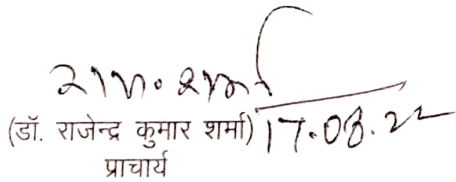 (डॉ. राजेन्द्र कुमार शर्मा) 17.08.22
प्राचार्य